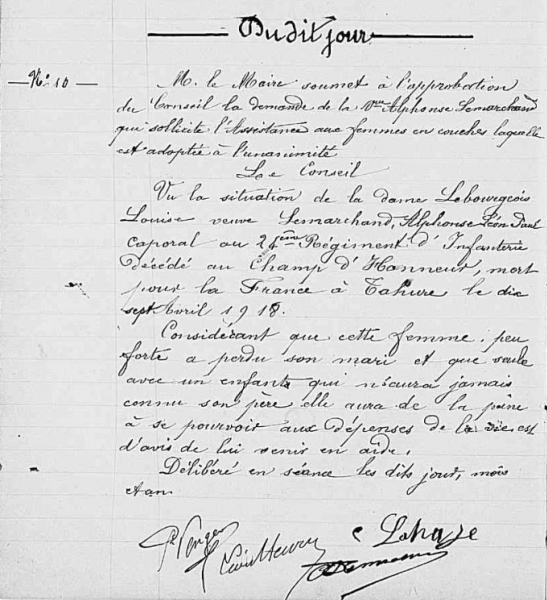 Du dit jour
N° 10
M. le Maire soumet à l'approbation
du Conseil la demande de la Vve Alphonse Lemarchand
qui sollicite l'Assistance aux femmes en couches laquelle
est adoptée à l'unanimité
Le Conseil
Vu la situation de la dame Lebourgeois
Louise veuve Lemarchand, Alphonse Léon Paul
caporal au 24ème Régiment d'Infanterie
décédé au Champ d'Honneur, mort
pour la France à Tahure le dix
sept Avril 1918.
Considérant que cette femme, peu
forte a perdu son mari et que seule
avec un enfant qui n'aura jamais
connu son père elle aura de la peine
à se pourvoir aux dépenses de la vie est
d'avis de lui venir en aide.
Délibéré en séance les dits jour, mois
et an